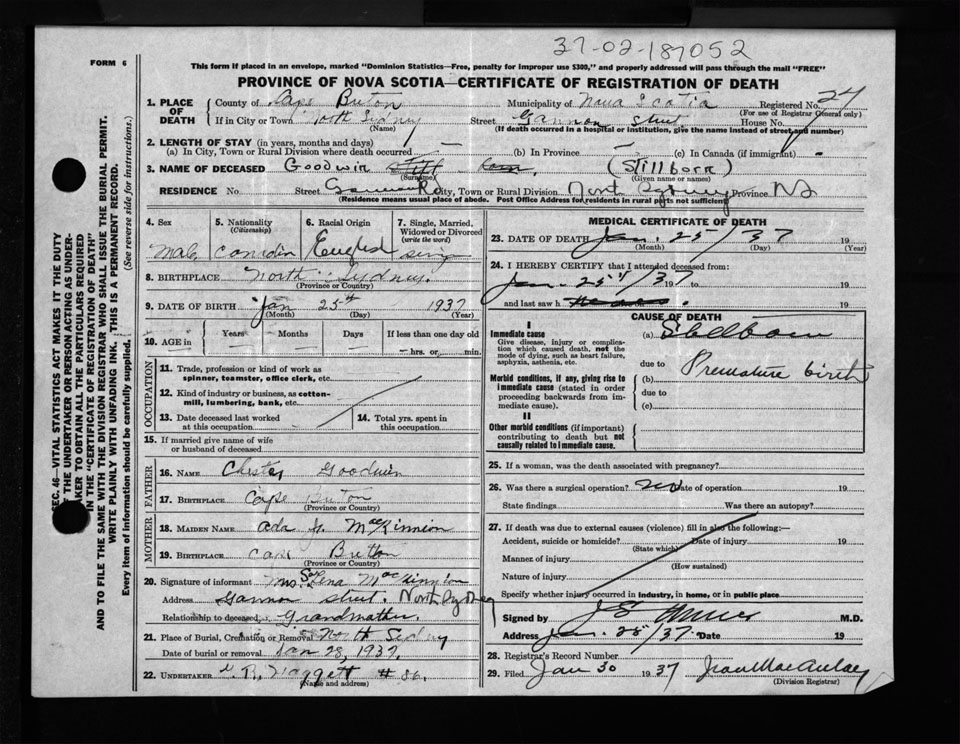 37-02-187052
FORM 6
This form if placed in an envelope, marked "Dominion Statistics—Free, penalty for improper use $300," and properly addressed will pass through the mail "FREE"
PROVINCE OF NOVA SCOTIA—CERTIFICATE OF REGISTRATION OF DEATH
1. PLACE OF DEATH { County of Cape Breton Municipality of Nova Scotia Registered No. 24
(For use of Registrar General only)
If in City or Town North Sydney Street Gannon Street House No.
(Name) (If death occurred in a hospital or institution, give the name instead of street and number)
2. LENGTH OF STAY (in years, months and days)
(a) In City, Town or Rural Division where death occurred — (b) In Province — (c) In Canada (if immigrant) -
3. NAME OF DECEASED Goodwin (Stillborn)
(Surname) (Given name or names)
RESIDENCE No. Street Gannon Rd City, Town or Rural Division North Sydney Province NS
(Residence means usual place of abode. Post Office Address for residents in rural parts not sufficient)
4. Sex 5. Nationality 6. Racial Origin 7. Single, Married,
(Citizenship) Widowed or Divorced
(write the word)
Male English
8. BIRTHPLACE North Sydney.
(Province or Country)
9. DATE OF BIRTH Jan 25th 1937
(Month) (Day) (Year)
10. AGE in { Years Months Days If less than one day old
— hrs. or min.
OCCUPATION
11. Trade, profession or kind of work as
spinner, teamster, office clerk, etc.
12. Kind of industry or business, as cotton-
mill, lumbering, bank, etc.
13. Date deceased last worked 14. Total yrs. spent in
at this occupation this occupation
15. If married give name of wife
or husband of deceased
FATHER
16. NAME Chester Goodwin
17. BIRTHPLACE Cape Breton
(Province or Country)
MOTHER
18. MAIDEN NAME Ada J. MacKinnon
19. BIRTHPLACE Cape Breton
(Province or Country)
20. Signature of informant Mrs.
Address Gannon Street. North Sydney
Relationship to deceased Grandmother
21. Place of Burial, Cremation or Removal North Sydney
Date of burial or removal Jan 28, 1937.
22. UNDERTAKER # 86.
(Name and address)
MEDICAL CERTIFICATE OF DEATH
23. DATE OF DEATH Jan. 25/37 19
(Month) (Day) (Year)
24. I HEREBY CERTIFY that I attended deceased from:
Jan. 25/37 19 to 19
and last saw h 19
CAUSE OF DEATH
I
Immediate cause (a) Stillborn
Give disease, injury or complica-
tion which caused death, not the
mode of dying, such as heart failure,
asphyxia, asthenia, etc.
due to Premature birth
Morbid conditions, if any, giving rise to (b)
immediate cause (stated in order due to
proceeding backwards from im- (c)
mediate cause).
II
Other morbid conditions (if important)
contributing to death but not
causally related to immediate cause.
25. If a woman, was the death associated with pregnancy?
26. Was there a surgical operation? no Date of operation 19
State findings Was there an autopsy?
27. If death was due to external causes (violence) fill in also the following:—
Accident, suicide or homicide? Date of injury 19
(State which)
Manner of injury
(How sustained)
Nature of injury
Specify whether injury occurred in industry, in home, or in public place
Signed by M.D.
Address Jan. 28/37. Date 19
28. Registrar's Record Number
29. Filed Jan 30 1937 Jean MacAulay
(Division Registrar)
SEC. 46—VITAL STATISTICS ACT MAKES IT THE DUTY
OF THE UNDERTAKER OR PERSON ACTING AS UNDER-
TAKER TO OBTAIN ALL THE PARTICULARS REQUIRED
IN THE "CERTIFICATE OF REGISTRATION OF DEATH"
AND TO FILE THE SAME WITH THE DIVISION REGISTRAR WHO SHALL ISSUE THE BURIAL PERMIT.
WRITE PLAINLY WITH UNFADING INK. THIS IS A PERMANENT RECORD.
Every item of information should be carefully supplied. (See reverse side for instructions.)